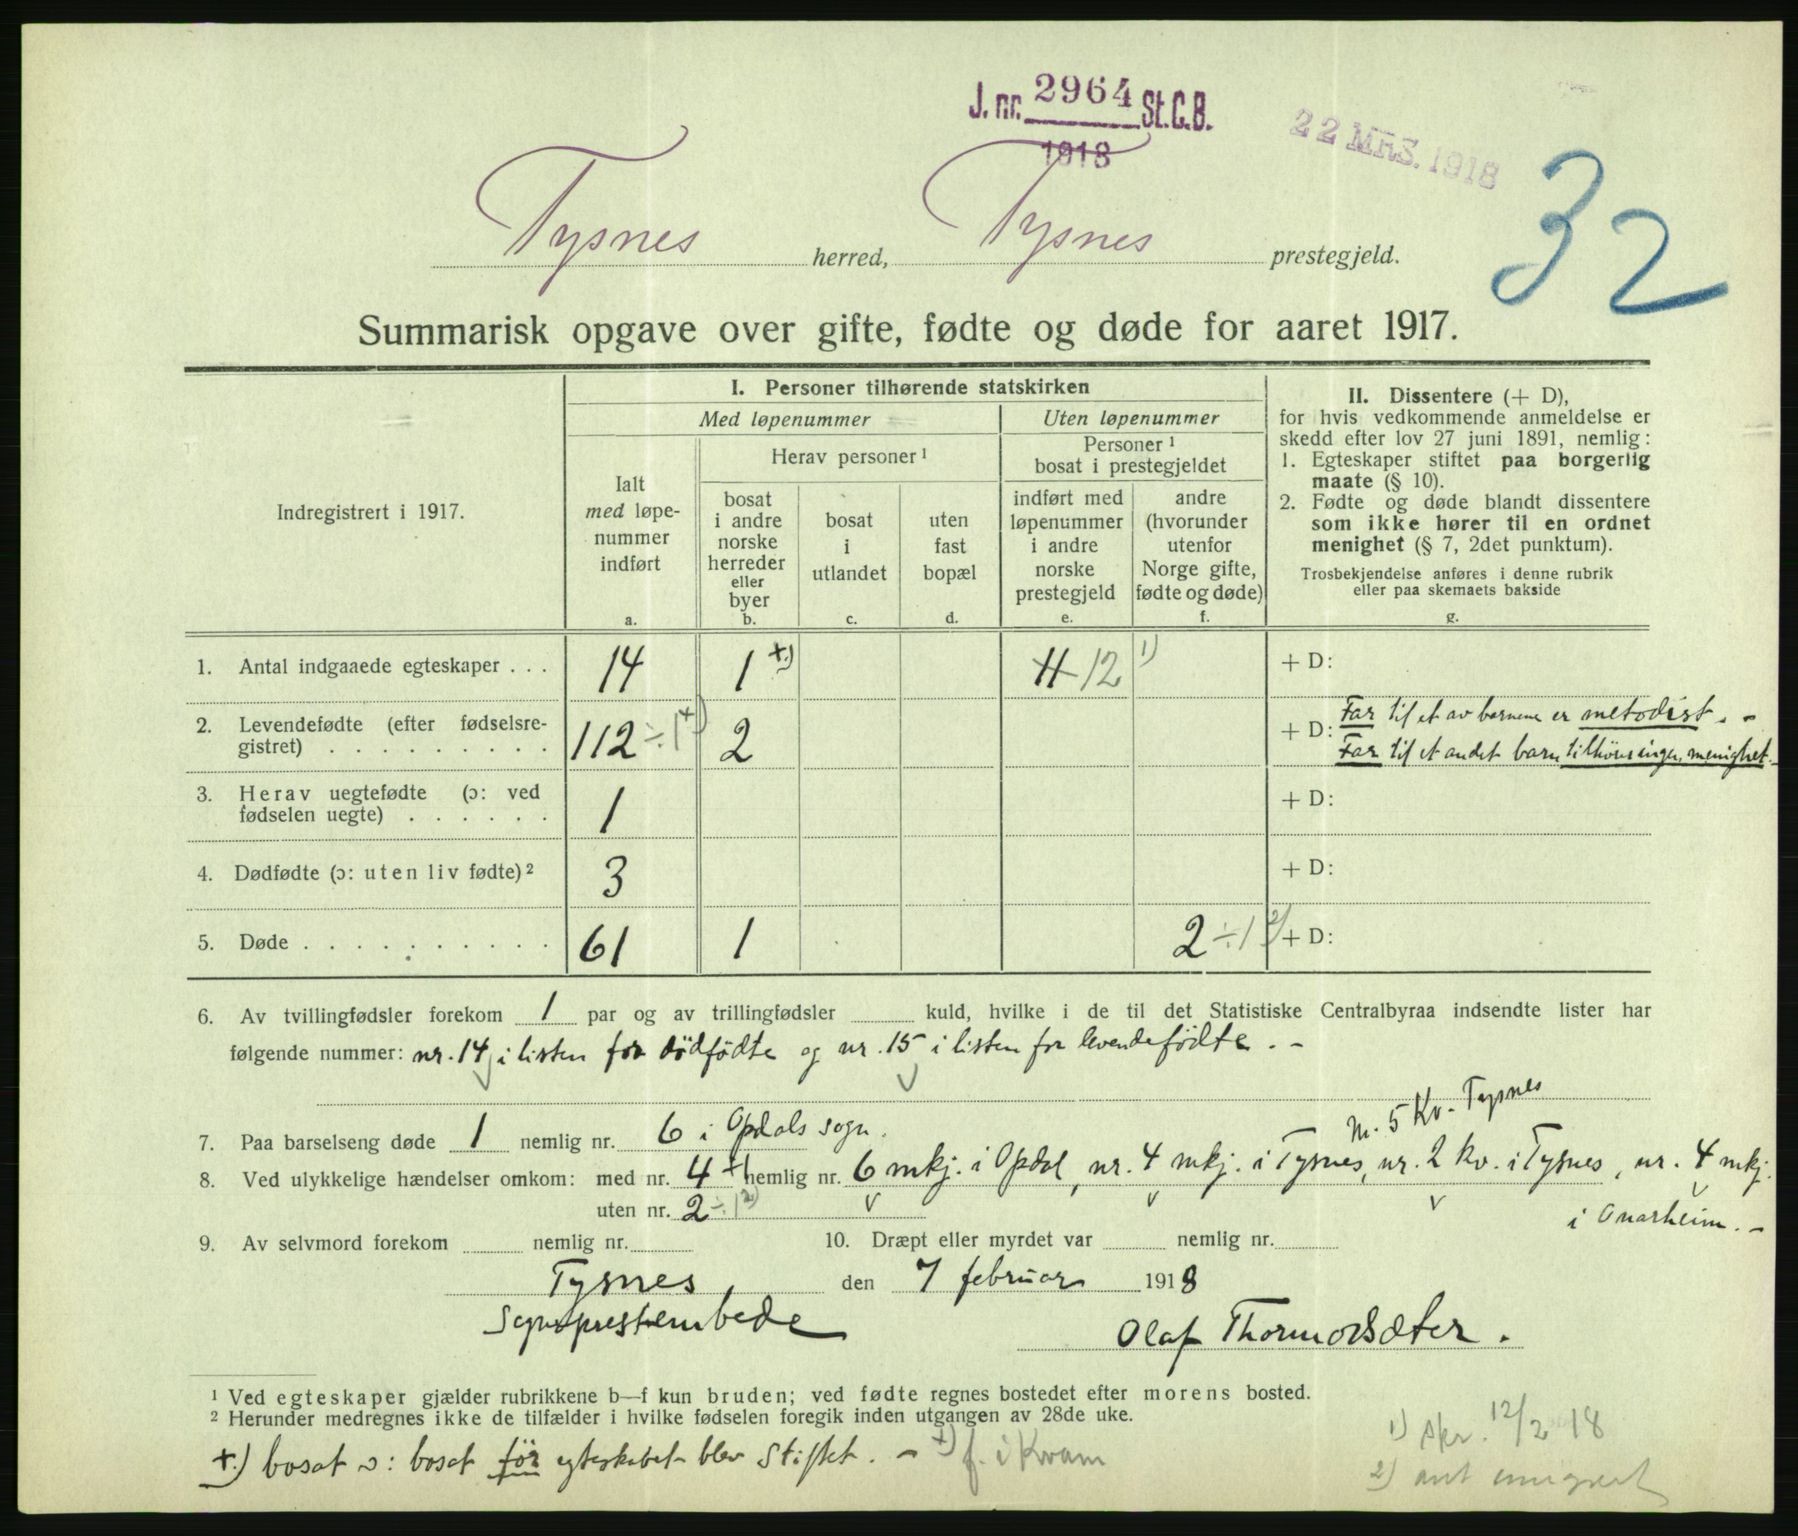 J. nr. 2964 St. C. B.
1918
22 MRS. 1918
32
Tysnes herred, Tysnes prestegjeld.
Summarisk opgave over gifte, fødte og døde for aaret 1917.
Indregistrert i 1917.
I. Personer tilhørende statskirken
Med løpenummer
Uten løpenummer
Ialt
med løpe-
nummer
indført
a.
Herav personer ¹
bosat
i andre
norske
herreder
eller
byer
b.
bosat
i
utlandet
c.
uten
fast
bopæl
d.
Personer ¹
bosat i prestegjeldet
indført med
løpenummer
i andre
norske
prestegjeld
e.
andre
(hvorunder
utenfor
Norge gifte,
fødte og døde)
f.
II. Dissentere (+ D),
for hvis vedkommende anmeldelse er
skedd efter lov 27 juni 1891, nemlig:
1. Egteskaper stiftet paa borgerlig
maate (§ 10).
2. Fødte og døde blandt dissentere
som ikke hører til en ordnet
menighet (§ 7, 2det punktum).
Trosbekjendelse anføres i denne rubrik
eller paa skemaets bakside
g.
1. Antal indgaaede egteskaper . . . 14 1 +) 11 12 1) + D:
2. Levendefødte (efter fødselsre-
gistret) . . . . . . . . . 112 ÷ 1 +) 2 + D: Far til et av barnene er metodist. -
Far til et andet barn tilhører ingen menighet. -
3. Herav uegtefødte (ɔ: ved
fødselen uegte) . . . . . . 1 + D:
4. Dødfødte (ɔ: uten liv fødte) ² 3 + D:
5. Døde . . . . . . . . . . 61 1 2 ÷ 1 2) + D:
6. Av tvillingfødsler forekom 1 par og av trillingfødsler kuld, hvilke i de til det Statistiske Centralbyraa indsendte lister har
følgende nummer: nr. 14 i listen for dödfödte og nr. 15 i listen for levendefödte. -
7. Paa barselseng døde 1 nemlig nr. 6 i Opdals sogn.
m. 5 Kv. Tysnes
8. Ved ulykkelige hændelser omkom: med nr. 4 +1 nemlig nr. 6 mkj. i Opdal, nr. 4 mkj. i Tysnes, nr. 2 kv. i Tysnes, nr. 4 mkj.
uten nr. 2 ÷ 1 2)
i Onarheim. -
9. Av selvmord forekom nemlig nr. 10. Dræpt eller myrdet var nemlig nr.
Tysnes den 7 februar 1918
Sogneprestembede
Olaf Thormodsæter.
¹ Ved egteskaper gjælder rubrikkene b—f kun bruden; ved fødte regnes bostedet efter morens bosted.
² Herunder medregnes ikke de tilfælder i hvilke fødselen foregik inden utgangen av 28de uke.
+) bosat ɔ: bosat för egteskabet blev stiftet. - +) f. i Kvam
1) skr. 12/2 18
2) ant